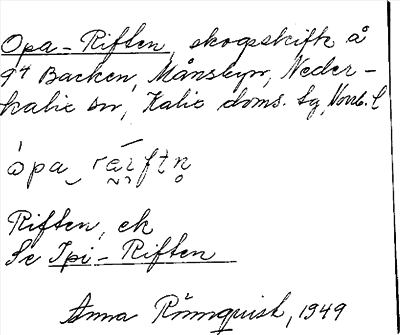 Opa-Riften, skogsskifte å
g⁺ Backen, Månsbyn, Neder-
kalix sn, Kalix doms. lg, Norrb. l
Riften, ek
Se Ipi-Riften
Anna Rönnquist, 1949